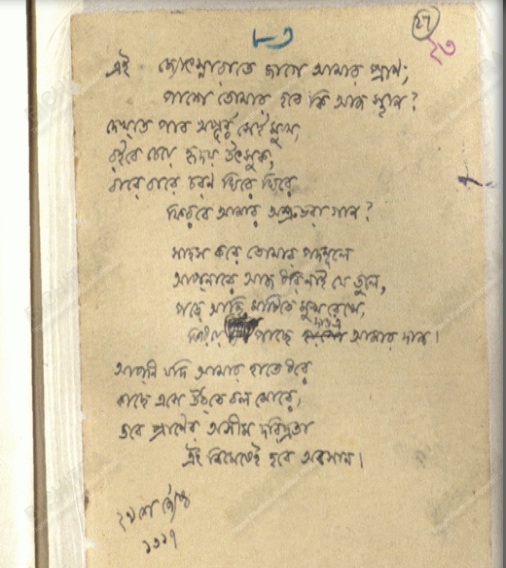 ৮৩
২৭
২৩
এই জ্যোৎস্নারাতে জাগে আমার প্রাণ;
পাশে তোমার হবে কি আজ স্থান?
দেখতে পাব অপূর্ব্ব সেই মুখ,
রইবে চেয়ে হৃদয় উৎসুক,
বারে বারে চরণ ঘিরে ঘিরে
ফিরবে আমার অশ্রুভরা গান?
সাহস করে তোমার পদমূলে
আপনারে আজ ধরি নাই যে তুলে,
পড়ে আছি মাটিতে মুখ রেখে,
ফিরিয়ে পাছে দাও আমার দান।
আপনি যদি আমার হাতে ধরে
কাছে এসে উঠতে বল মোরে,
তবে প্রাণের অসীম দরিদ্রতা
এই নিমেষেই হবে অবসান।
২৮শে জ্যৈষ্ঠ
১৩১৭